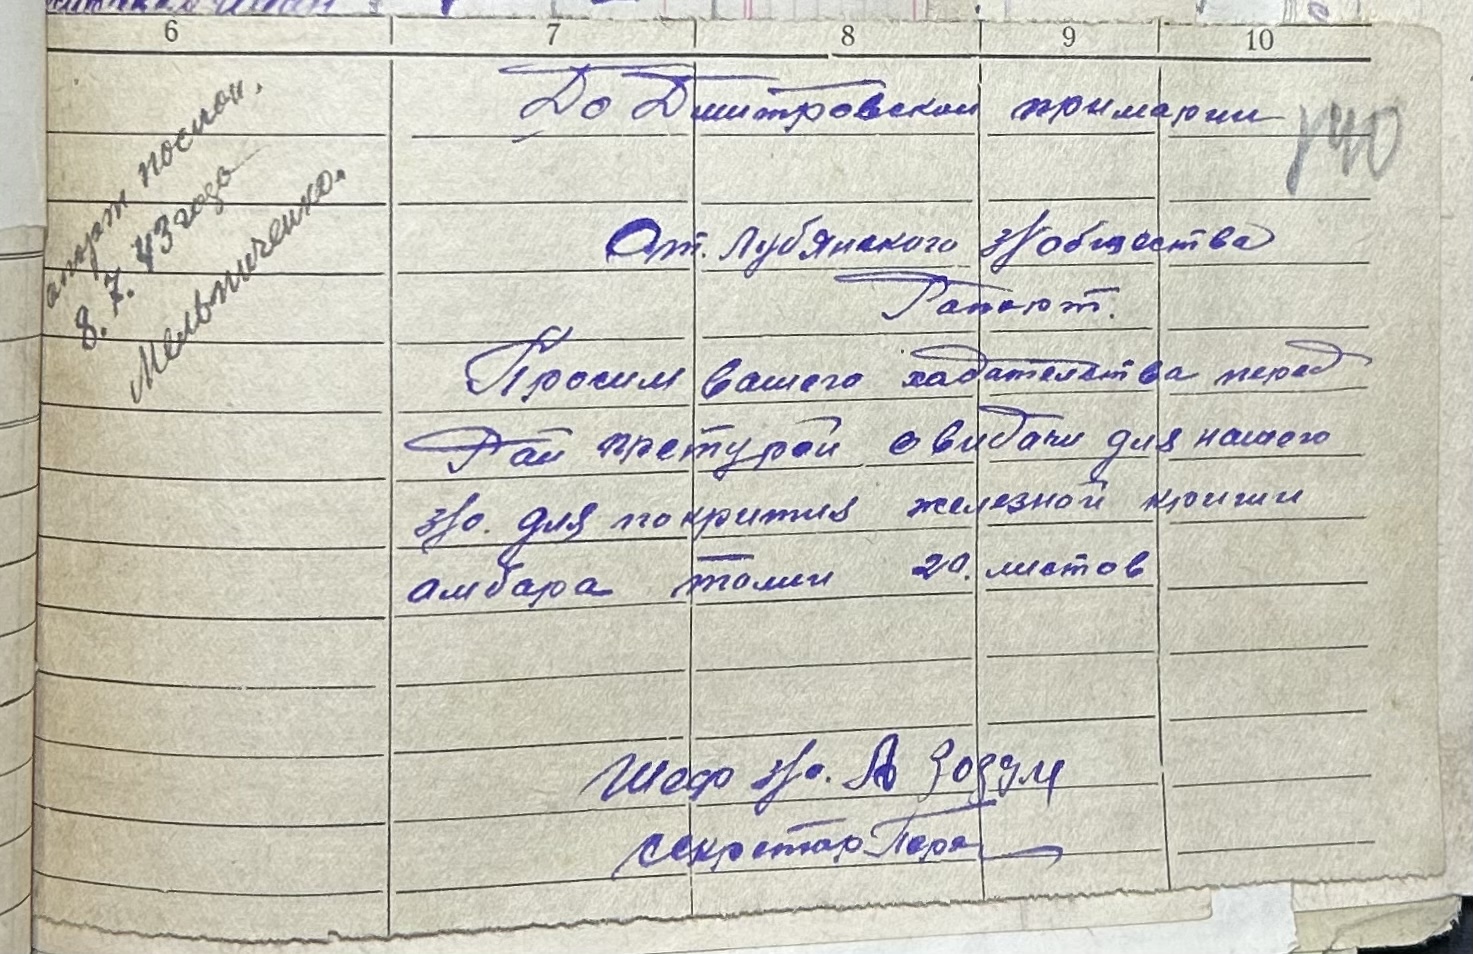 6 7 8 9 10
До Дмитровской примарии
140
От. Лубянского з/общества
Рапорт.
Просим вашего ходательства перед
Рай претурой о видачи для нашего
з/о. для покрития железной криши
амбара толи 20. листов
Шеф з/о. А
секретар
рапорт послан.
8. 7. 43 года
Мельниченко.